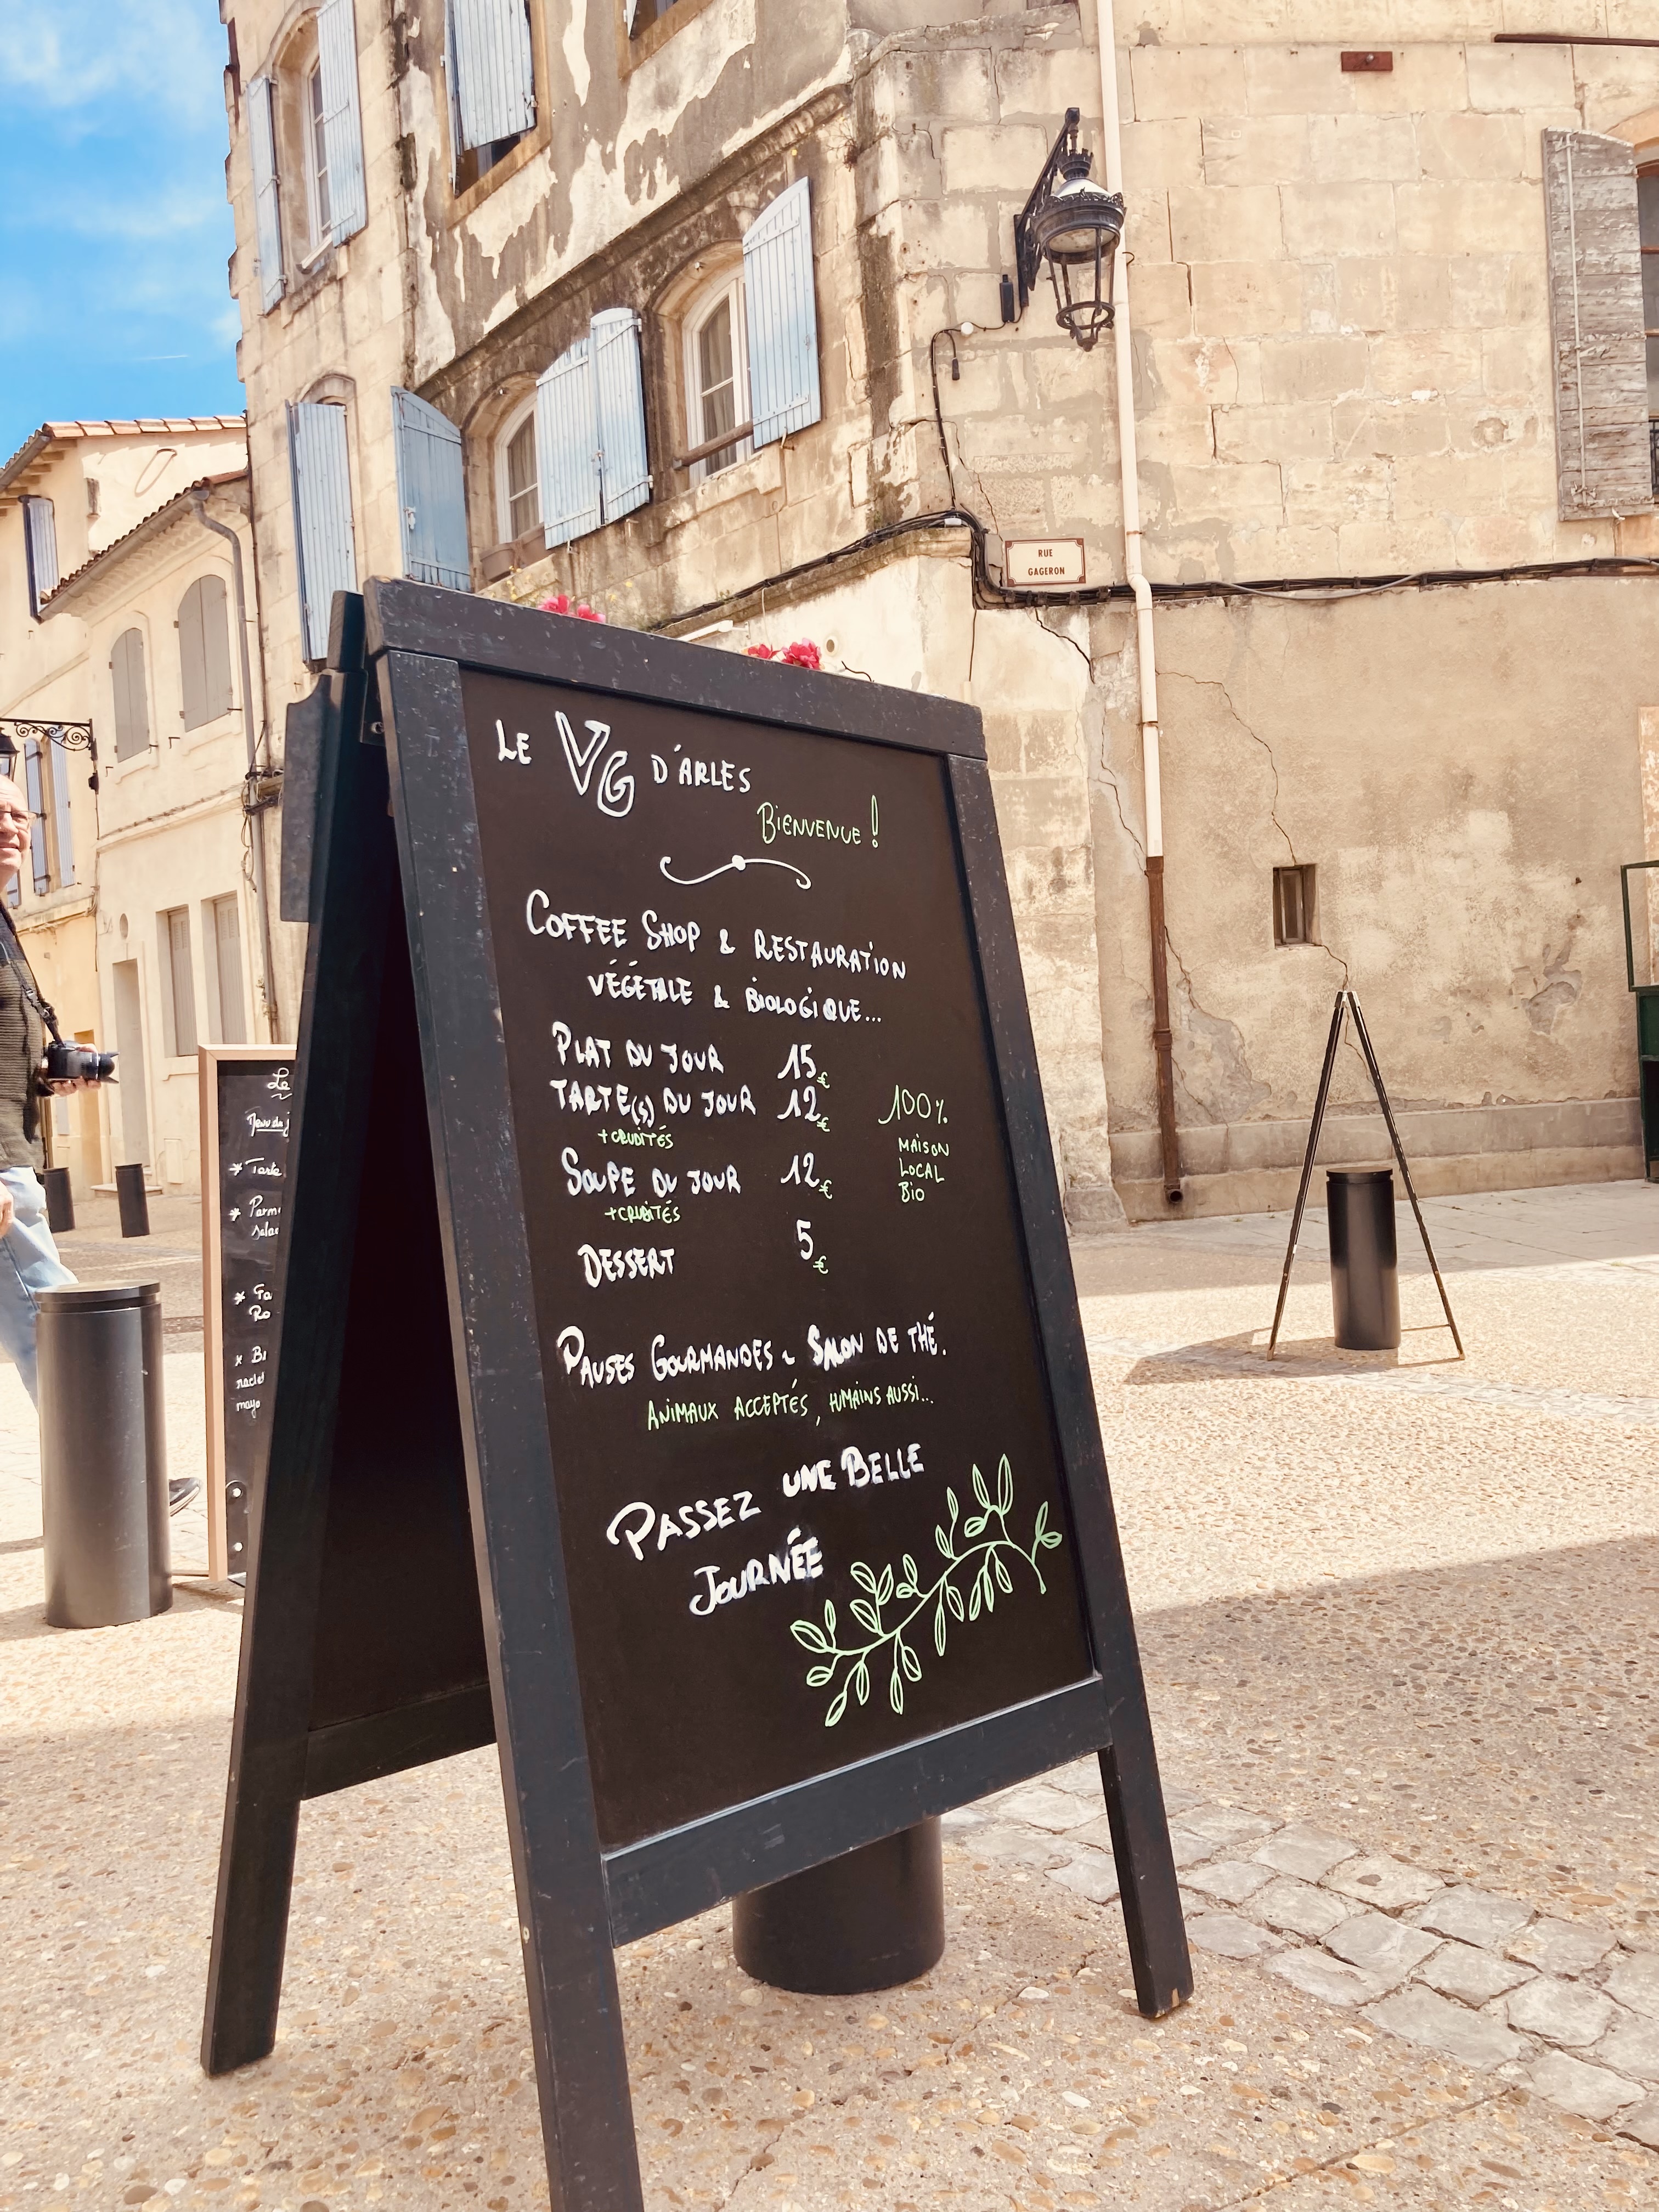 RUE
GAGERON
LE VG D'ARLES
BIENVENUE !
COFFEE SHOP & RESTAURATION
VÉGÉTALE & BIOLOGIQUE...
PLAT DU JOUR 15€
TARTE(S) DU JOUR 12€
+CRUDITÉS
SOUPE DU JOUR 12€
+CRUDITÉS
DESSERT 5€
100%
MAISON
LOCAL
BIO
PAUSES GOURMANDES & SALON DE THÉ.
ANIMAUX ACCEPTÉS, HUMAINS AUSSI...
PASSEZ UNE BELLE
JOURNÉE
Le
* Tarte
* Parm
salad
* Ro
* Bi
mayo